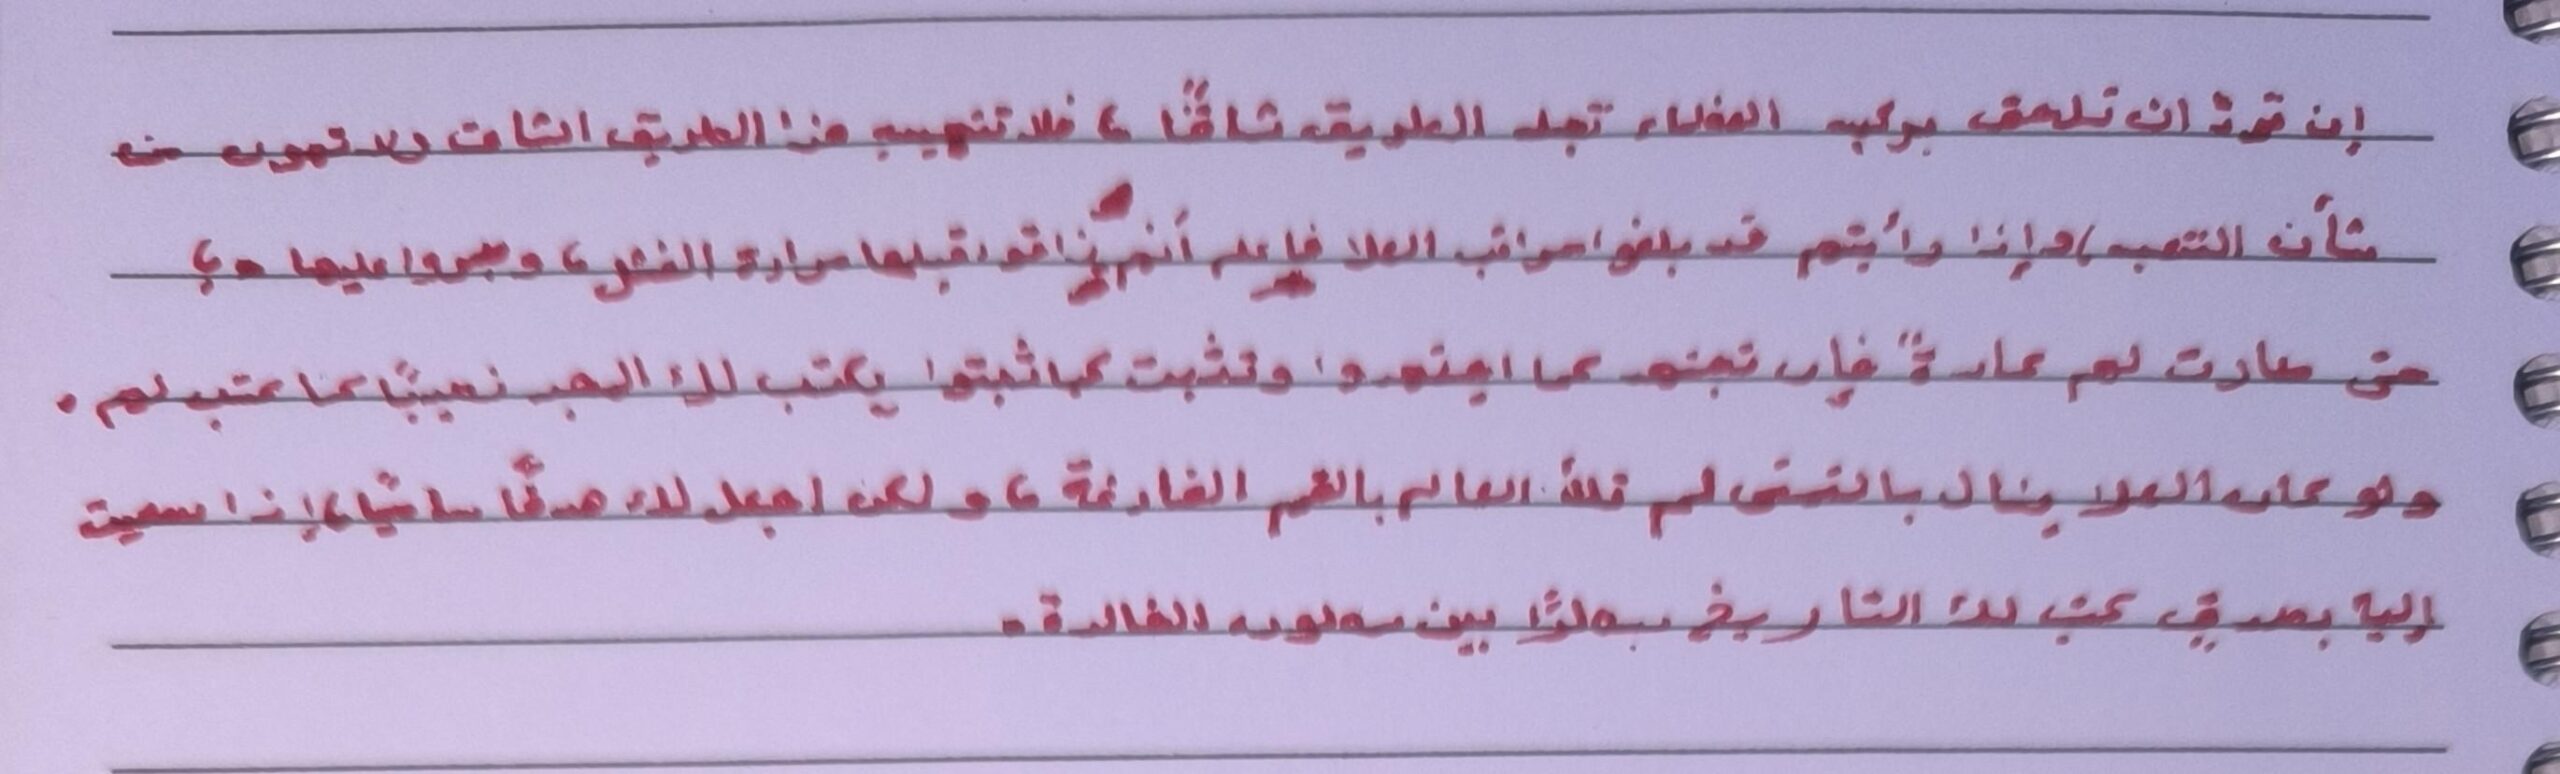 إن ترد ان تلحق بركب العظماء تجد الطريق شاقًا ، فلا تتهيب هذا الطريق الشاق ولا تهون من
شأن التعب ، وإذا رأيتهم قد بلغوا مراتب العلا فاعلم أنهم ذاقوا قبلها مرارة الفشل ، وصبروا عليها ،
حتى صارت لهم عادةً فإن تجتهد كما اجتهدوا وتثبت كما ثبتوا يكتب لك المجد نصيبًا كما كتب لهم .
ولو كان العلا ينال بالتمني لم تملأ العالم بالقمم الفارغة ، و لكن اجعل لك هدفًا ساميًا ، إذا سعيت
إلية بصدق كتب لك التاريخ سطرًا بين سطوره الخالدة .